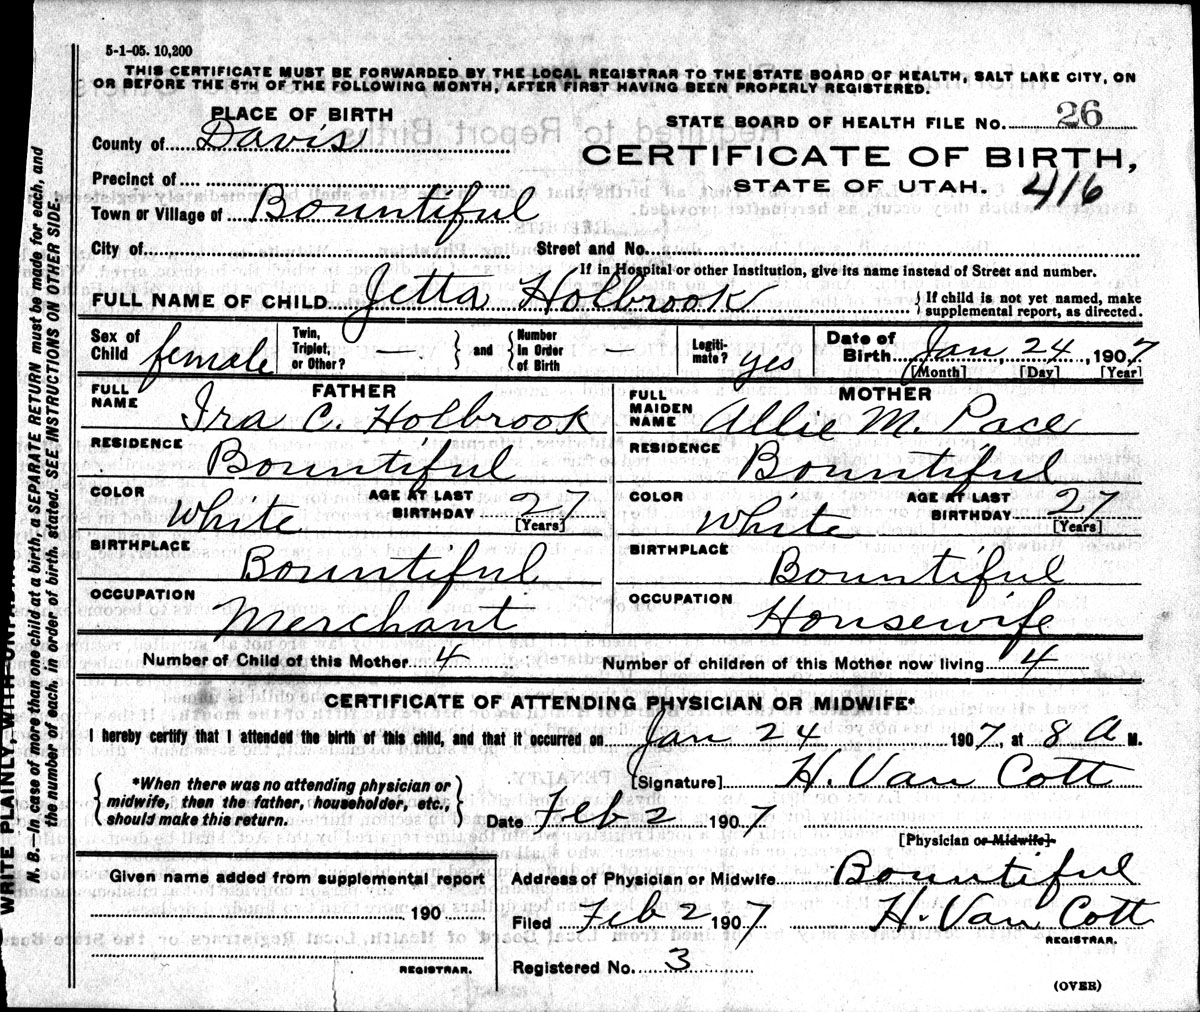 5-1-05. 10,200
THIS CERTIFICATE MUST BE FORWARDED BY THE LOCAL REGISTRAR TO THE STATE BOARD OF HEALTH, SALT LAKE CITY, ON
OR BEFORE THE 5TH OF THE FOLLOWING MONTH, AFTER FIRST HAVING BEEN PROPERLY REGISTERED.
PLACE OF BIRTH
County of Davis
Precinct of
Town or Village of Bountiful
City of
Street and No.
STATE BOARD OF HEALTH FILE No. 26
CERTIFICATE OF BIRTH,
STATE OF UTAH. 416
If in Hospital or other Institution, give its name instead of Street and number.
FULL NAME OF CHILD Jetta Holbrook { If child is not yet named, make supplemental report, as directed.
Sex of Child female
Twin, Triplet, or Other? — } and { Number in Order of Birth —
Legiti-mate? yes
Date of Birth Jan 24, 1907
[Month] [Day] [Year]
FATHER
FULL NAME Ira C. Holbrook
RESIDENCE Bountiful
COLOR White AGE AT LAST BIRTHDAY 27
[Years]
BIRTHPLACE Bountiful
OCCUPATION Merchant
MOTHER
FULL MAIDEN NAME Allie M. Pace
RESIDENCE Bountiful
COLOR White AGE AT LAST BIRTHDAY 27
[Years]
BIRTHPLACE Bountiful
OCCUPATION Housewife
Number of Child of this Mother 4 Number of children of this Mother now living 4
CERTIFICATE OF ATTENDING PHYSICIAN OR MIDWIFE*
I hereby certify that I attended the birth of this child, and that it occurred on Jan 24 1907, at 8 A M.
{ *When there was no attending physician or
midwife, then the father, householder, etc.,
should make this return. }
[Signature] H. Van Cott
Date Feb 2 1907
[Physician or Midwife]
Given name added from supplemental report
190
REGISTRAR.
Address of Physician or Midwife Bountiful
Filed Feb 2 1907 H. Van Cott
REGISTRAR.
Registered No. 3
(OVER)
WRITE PLAINLY, WITH
N. B.—In case of more than one child at a birth, a SEPARATE RETURN must be made for each, and
the number of each, in order of birth, stated. SEE INSTRUCTIONS ON OTHER SIDE.